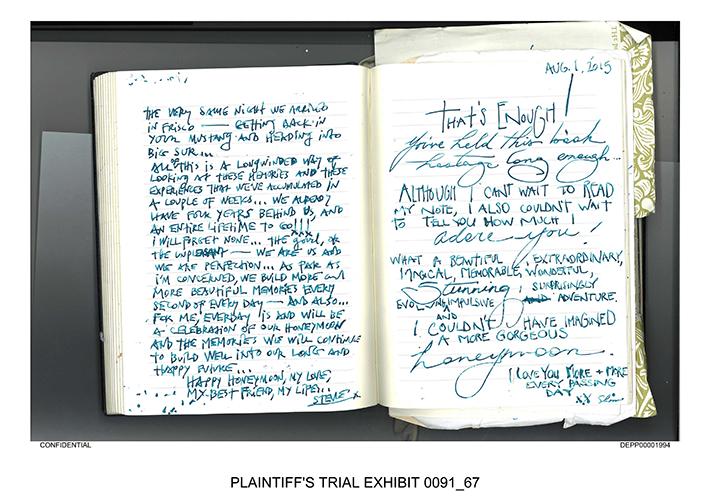 THE VERY SAME NIGHT WE ARRIVED
IN FRISCO — GETTING BACK IN
YOUR MUSTANG AND HEADING INTO
BIG SUR...
ALL OF THIS IS A LONGWINDED WAY OF
LOOKING AT THESE MEMORIES AND THESE
EXPERIENCES THAT WE'VE ACCUMULATED IN
A COUPLE OF WEEKS... WE ALREADY
HAVE FOUR YEARS BEHIND US, AND
AN ENTIRE LIFETIME TO GO!!!
XXX
I WILL FORGET NONE... THE GOOD, OR
THE UNPLEASANT — WE ARE US AND
WE ARE PERFECTION... AS FAR AS
I'M CONCERNED, WE BUILD MORE AND
MORE BEAUTIFUL MEMORIES EVERY
SECOND OF EVERY DAY — AND ALSO...
FOR ME, EVERYDAY IS AND WILL BE
A CELEBRATION OF OUR HONEYMOON
AND THE MEMORIES WE WILL CONTINUE
TO BUILD WELL INTO OUR LONG AND
HAPPY FUTURE...
HAPPY HONEYMOON, MY LOVE,
MY BEST FRIEND, MY LIFE...
STEVE X
AUG. 1, 2015
THAT'S ENOUGH!
You've held this book
hostage long enough...
ALTHOUGH I CANT WAIT TO READ
MY NOTE, I ALSO COULDN'T WAIT
TO TELL YOU HOW MUCH I
adore you!
WHAT A BEAUTIFUL, EXTRAORDINARY,
MAGICAL, MEMORABLE, WONDERFUL,
Stunning, SURPRISINGLY
IMPULSIVE ADVENTURE.
AND
I COULDN'T HAVE IMAGINED
A MORE GORGEOUS
honeymoon.
I LOVE YOU MORE + MORE
EVERY PASSING
DAY
XX Slim
CONFIDENTIAL
DEPP00001994
PLAINTIFF'S TRIAL EXHIBIT 0091_67